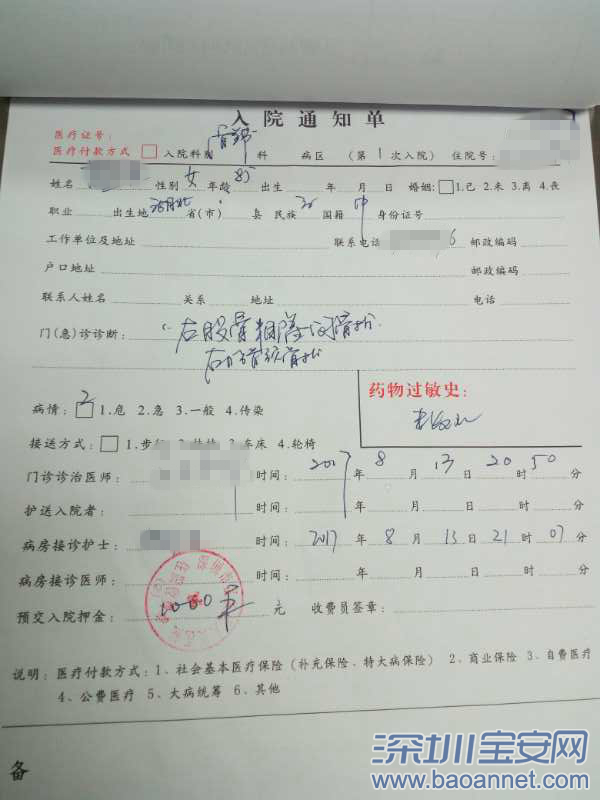 入院通知单
医疗证号：
医疗付款方式 入院科别 骨科 科 病区 (第1次入院) 住院号：
姓名 性别 女 年龄 出生 年 月 日 婚姻： 1.已 2.未 3.离 4.丧
职业 出生地 省(市) 县 民族 汉 国籍 中 身份证号
工作单位及地址 联系电话 6 邮政编码
户口地址 邮政编码
联系人姓名 关系 地址 电话
门(急)诊诊断： 右股骨粗隆间骨折
药物过敏史：
病情： 2 1.危 2.急 3.一般 4.传染
接送方式： 1.步行 3.车床 4.轮椅
门诊诊治医师： 时间： 2017年 8 月 13 日 20 时 50 分
护送入院者： 时间： 年 月 日 时 分
病房接诊护士： 时间： 2017 年 8 月 13 日 21 时 07 分
病房接诊医师： 时间： 年 月 日 时 分
预交入院押金： 元 收费员签章：
说明：医疗付款方式：1、社会基本医疗保险（补充保险、特大病保险） 2、商业保险 3、自费医疗
4、公费医疗 5、大病统筹 6、其他
备
深圳宝安网
www.baoannet.com